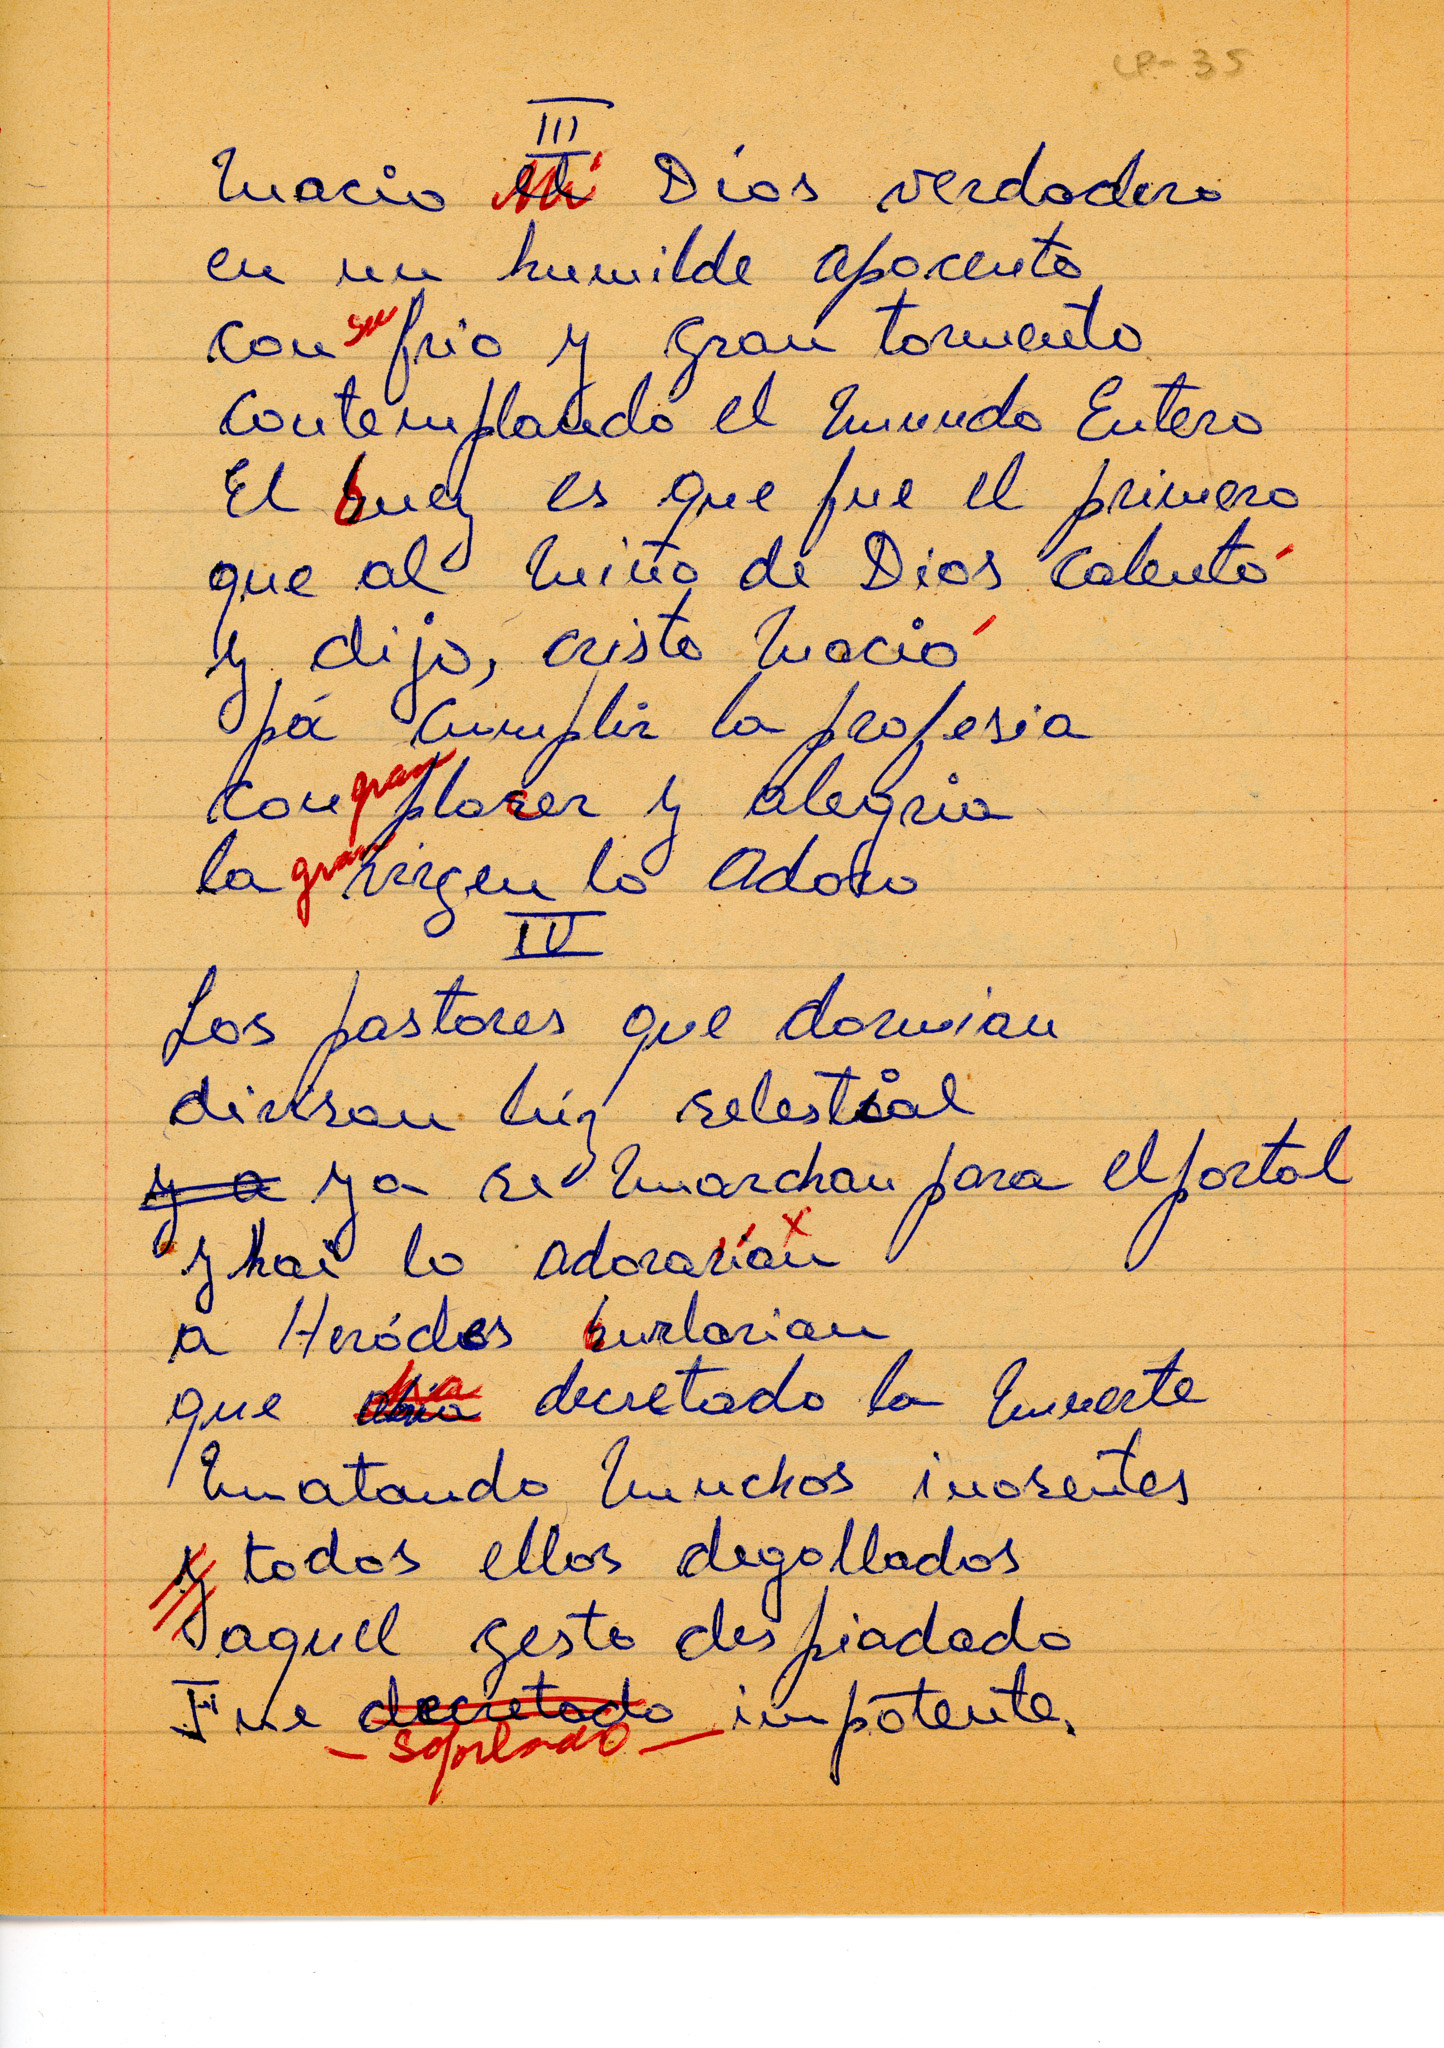 LP-35
III
Nacio Mi Dios verdadero
en un humilde aposento
con su frio y gran tormento
contemplando el mundo Entero
El buey es que fue el primero
que al niño de Dios calentó
y dijo, cristo nació
pá cumplir la profesia
con gran placer y alegria
la gran virgen lo adoro
IV
Los pastores que dormian
divisan lúz selestial
y a ya se marchan para el portal
y hai lo adorarían x
a Heródes burlarian
que bia decretado la muerte
matando muchos inosentes
y todos ellos degollados
aquel gesto despiadado
Fue decretado impotente.